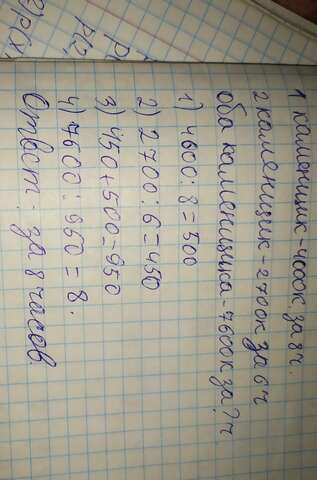 1 каменщик - 4000к. за 8ч.
2 каменщик - 2700к за 6ч
оба каменщика - 7600к за ? ч
1) 4000 : 8 = 500
2) 2700 : 6 = 450
3) 450 + 500 = 950
4) 7600 : 950 = 8.
Ответ: за 8 часов.